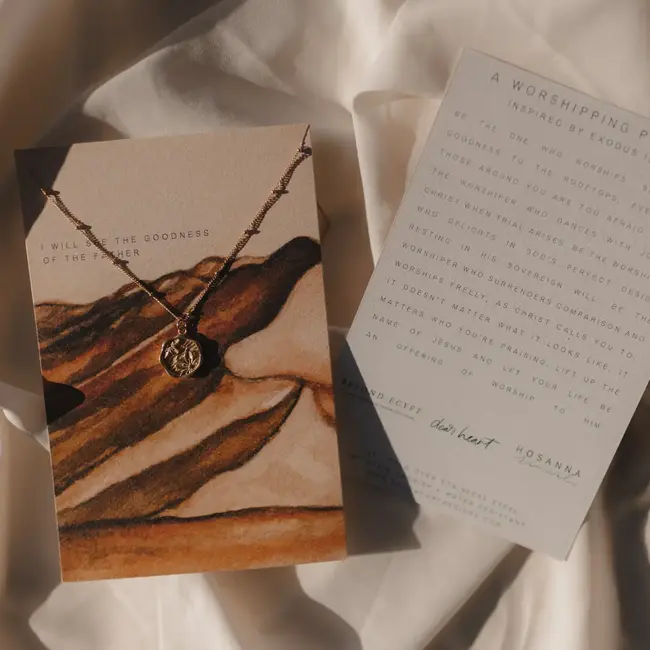 I WILL SEE THE GOODNESS
OF THE FATHER
A WORSHIPPING P
INSPIRED BY EXODUS
BE THE ONE WHO WORSHIPS
GOODNESS TO THE ROOFTOPS, EVE
THOSE AROUND YOU ARE TOO AFRAID
THE WORSHIPER WHO DANCES WITH JO
CHRIST WHEN TRIAL ARISES. BE THE WORSHI
WHO DELIGHTS IN GOD'S PERFECT DESIG
RESTING IN HIS SOVEREIGN WILL. BE THE
WORSHIPER WHO SURRENDERS COMPARISON AND
WORSHIPS FREELY, AS CHRIST CALLS YOU TO.
IT DOESN'T MATTER WHAT IT LOOKS LIKE, IT
MATTERS WHO YOU'RE PRAISING. LIFT UP THE
NAME OF JESUS AND LET YOUR LIFE BE
AN OFFERING OF WORSHIP TO HIM.
BEYOND EGYPT
dear heart
HOSANNA
OVER STAINLESS STEEL
WATER RESISTANT